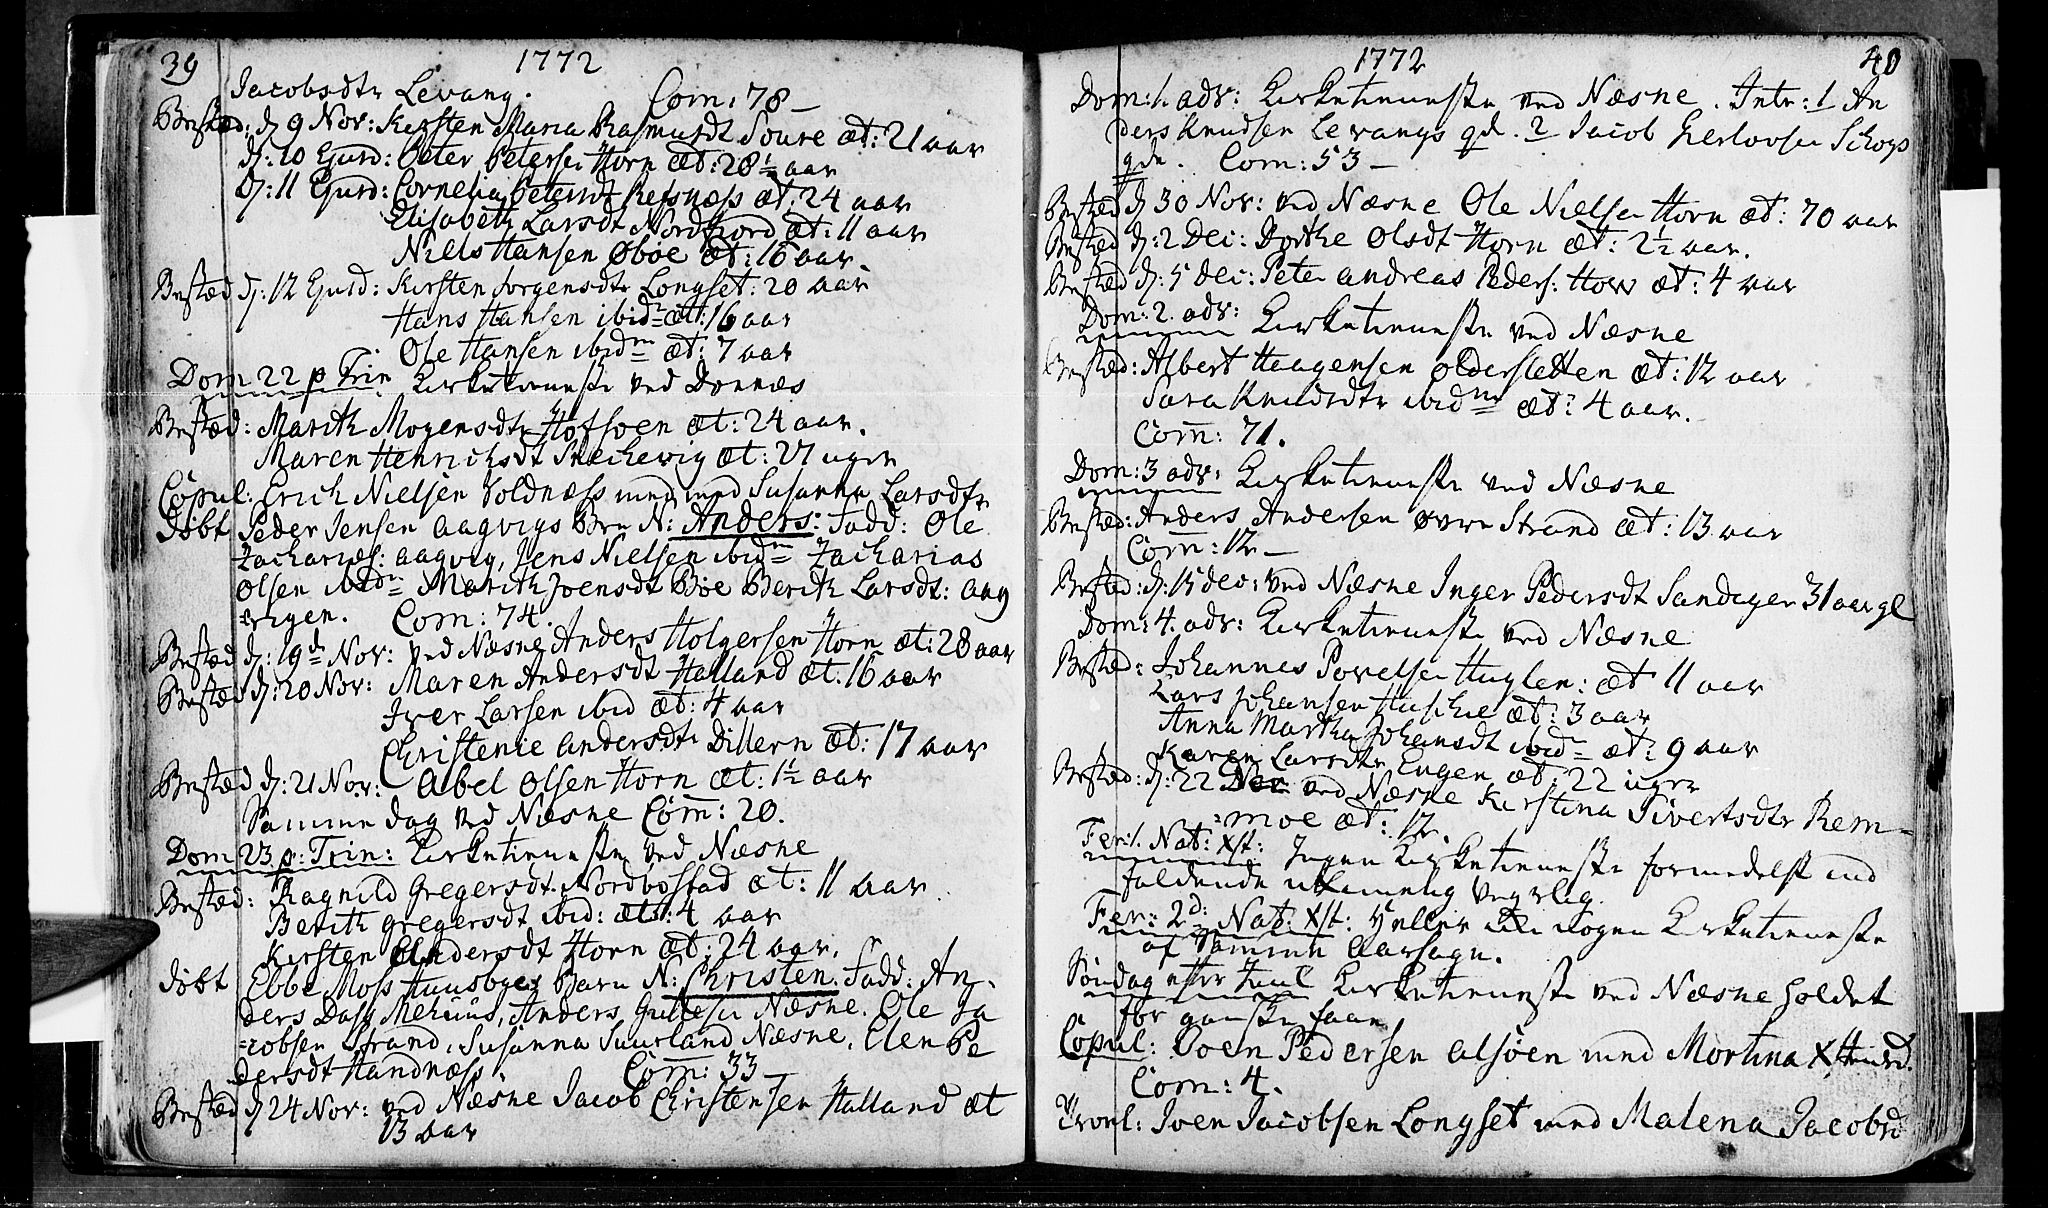 39
1772
Jacobsdtr Levang. Com: 78 –
Bested: d 9 Nov: Kirsten Maria Rasmusdt Soure æt: 21 aar
d: 10 Ejusd: Peter Petersen Horn æt: 28½ aar
D: 11 Ejusd: Cornelia Petersdt Refsnæs æt. 24 aar
Elisabeth Larsdt Nordfjord æt: 11 aar
Niels Hansen Øboe æt: 16 aar.
Bested d: 12 Ejusd: Kirsten Jørgensdtr Longset: 20 aar
Hans Hansen ibid= æt: 16 aar
Ole Hansen ibidm æt: 7 aar
Dom 22 p Trin Kirketieneste ved Dønnæs
Bested: Marith Mogensdtr Hofsøen æt: 24 aar.
Maren Henrichsdt æt: 27 uger
Copul: Erich Nielsen Soldnæss med Susanna Larsdtr
Døbt Peder Jensen Aagvigs Brn N: Anders: Fadd: Ole
Zachariæs: Aagvig, Jens Nielsen ibidm Zacharias
Olsen ibidm Marith Joensdt Bøe Berith Larsdt: Aag
=vigen. Com: 74.
Bested d: 19d Nov: ved Næsne Anders Holgersen Horn æt: 28 aar
Bested d: 20 Nov: Maren Andersdt Halland æt. 16 aar
Iver Larsen ibid æt: 4 aar
Christenie Andersdtr Dillern æt: 17 aar
Bested d: 21 Nov: Abel Olsen Horn æt: 1½ aar
Samme dag ved Næsne Com: 20.
Dom 23 p: Trin: Kirketieneste ved Næsne
Bested: Ragnild Gregersdt Nordbostad æt: 11 aar
Berith Gregersdt ibid: æt: 4 aar
Kirsten Endersdt Horn æt: 24 aar.
Døbt Ebbe Moss Huusbyes Barn N: Christen. Fadd: An-
ders Dass Mehuus, Anders Næsne. Ole Ja
=cobsen Strand, Susanna Suurland Næsne, Elen Pe
dersdt Handnæss. Com: 33
Bested d 24 Nov: ved Næsne Jacob Christensen Halland æt
13 aar
1772
40
Dom: 1. adv: Kirketieneste ved Næsne. Intr: 1 An
ders Knudsen Levangs qd. 2 Jacob Gerlovsen Schogs
qde. Com: 53 –
Bested d 30 Nov: ved Næsne Ole Nielsen Horn æt: 70 aar
Bested d: 2 Dec: Dorthe Olsdt Horn æt: 2½ aar.
Bested d: 5 dec: Peter Andreas Peders: Horn æt: 4 aar
Dom: 2. adv: Kirketieneste ved Næsne
Bested: Albert Haagensen Oldersletten æt: 12 aar
Sara Knudsdtr ibidm æt: 4 aar.
Com: 71.
Dom: 3 adv: Kirketieneste ved Næsne
Bested: Anders Andersen øvre Strand æt: 13 aar
Com: 12 –
Bested: d: 15 dec: ved Næsne Inger Pedersdt Sandager 31 aar gl
Dom: 4. adv: Kirketieneste ved Næsne
Bested: Johannes Povelsen Huglen: æt 11 aar
Lars Johansen æt: 3 aar
Anna Martha Johansdt ibid= æt: 9 aar
Karen Larsdtr Engen æt: 22 uger
Bested: d: 22 ved Næsne Kirstina Sivertsdtr Rem-
=moe æt: 12.
Fer: 1. Nat: Xst: Ingen Kirketieneste formedelst ind
faldende ulemmelig veyrlig.
Fer: 2d: Nat: Xst: Heller ike nogen Kirketieneste
af samme Aarsage.
Søndag efter Juul Kirketieneste ved Næsne holdet
for ganske faae
Copul: Joen Pedersen Alsøen med Mortina
Com: 4.
Trovl: Joen Jacobsen Longset med Malena Jacobsd